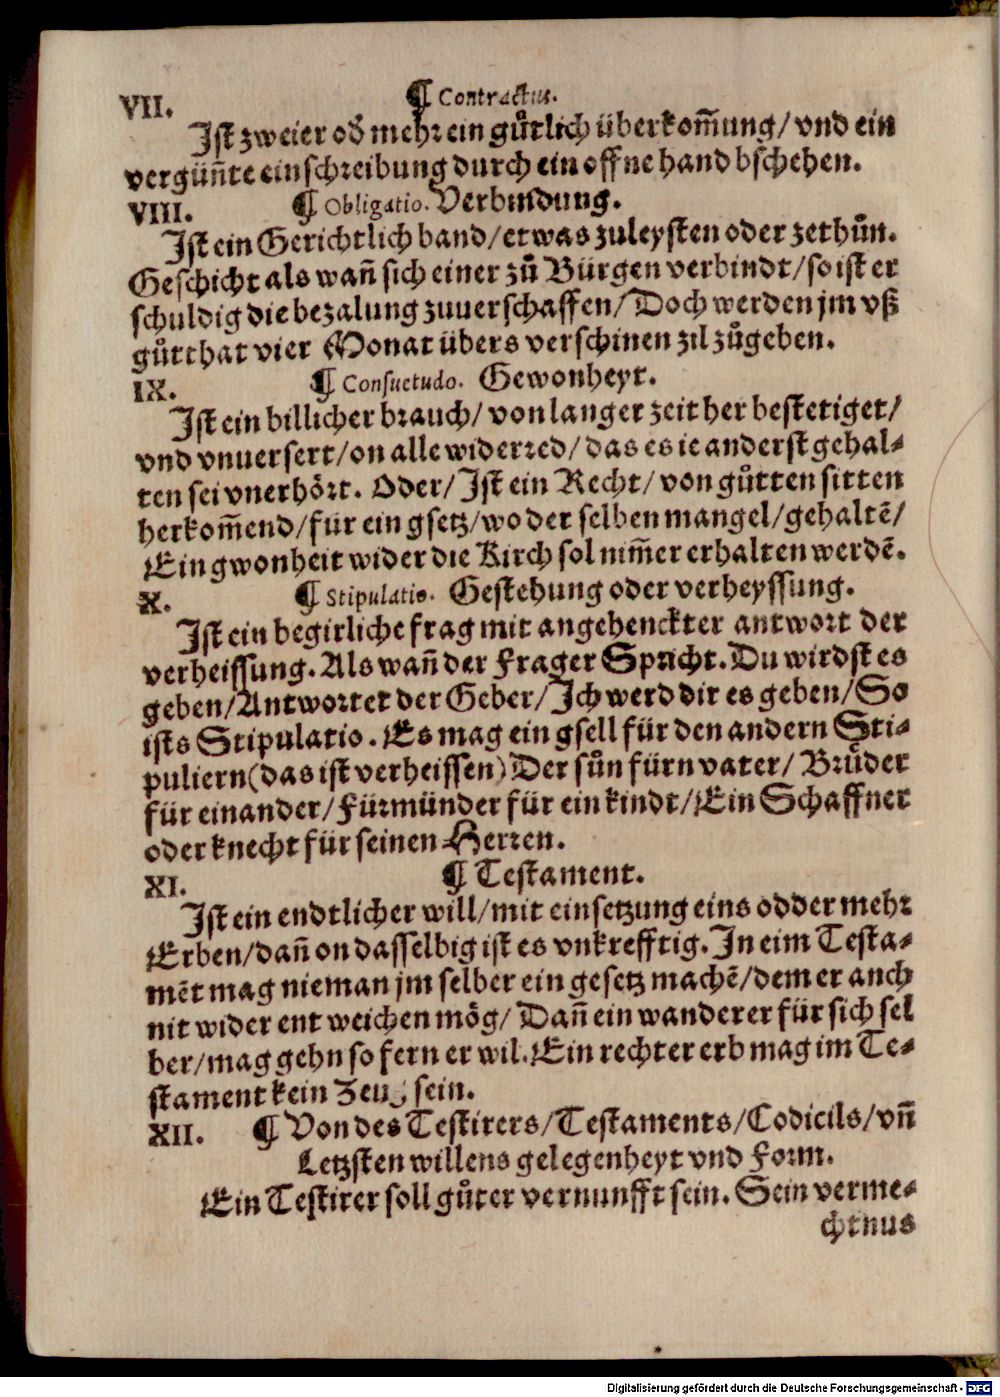 VII. ¶ Contractus.
Jst zweier od mehr ein gůtlich überkom̃ung/ vnd ein
vergün̄te einschreibung durch ein offne hand bschehen.
VIII. ¶ Obligatio. Verbindung.
Jst ein Gerichtlich band/ etwas zuleysten oder zethůn.
Geschicht als wan̄ sich einer zů Bürgen verbindt/ so ist er
schuldig die bezalung zuuerschaffen/ Doch werden jm vß
gůtthat vier Monat übers verschinen zil zůgeben.
IX. ¶ Consuetudo. Gewonheyt.
Jst ein billicher brauch/ von langer zeit her bestetiget/
vnd vnuersert/ on alle widerred/ das es ie anderst gehal-
ten sei vnerhört. Oder/ Jst ein Recht/ von gůtten sitten
herkom̃end/ für ein gsetz/ wo der selben mangel/ gehaltē/
Ein gwonheit wider die Kirch sol nim̃er erhalten werdē.
X. ¶ Stipulatio. Gestehung oder verheyssung.
Jst ein begirliche frag mit angehenckter antwort der
verheissung. Als wan̄ der Frager Spricht. Du wirdst es
geben/ Antwortet der Geber/ Jch werd dir es geben/ So
ists Stipulatio. Es mag ein gsell für den andern Sti-
puliern (das ist verheissen) Der sůn fürn vater/ Brůder
für einander/ Fürmünder für ein kindt/ Ein Schaffner
oder knecht für seinen Herren.
XI. ¶ Testament.
Jst ein endtlicher will/ mit einsetzung eins odder mehr
Erben/ dan̄ on dasselbig ist es vnkrefftig. Jn eim Testa-
mēt mag nieman jm selber ein gesetz machē/ dem er auch
nit wider entweichen mög/ Dan̄ ein wanderer für sich sel
ber/ mag gehn so fern er wil. Ein rechter erb mag im Te-
stament kein Zeug sein.
XII. ¶ Von des Testirers/ Testaments/ Codicils/ vn̄
Letzsten willens gelegenheyt vnd Form.
Ein Testirer soll gůter vernunfft sein. Sein verme-
chtnus
Digitalisierung gefördert durch die Deutsche Forschungsgemeinschaft - DFG